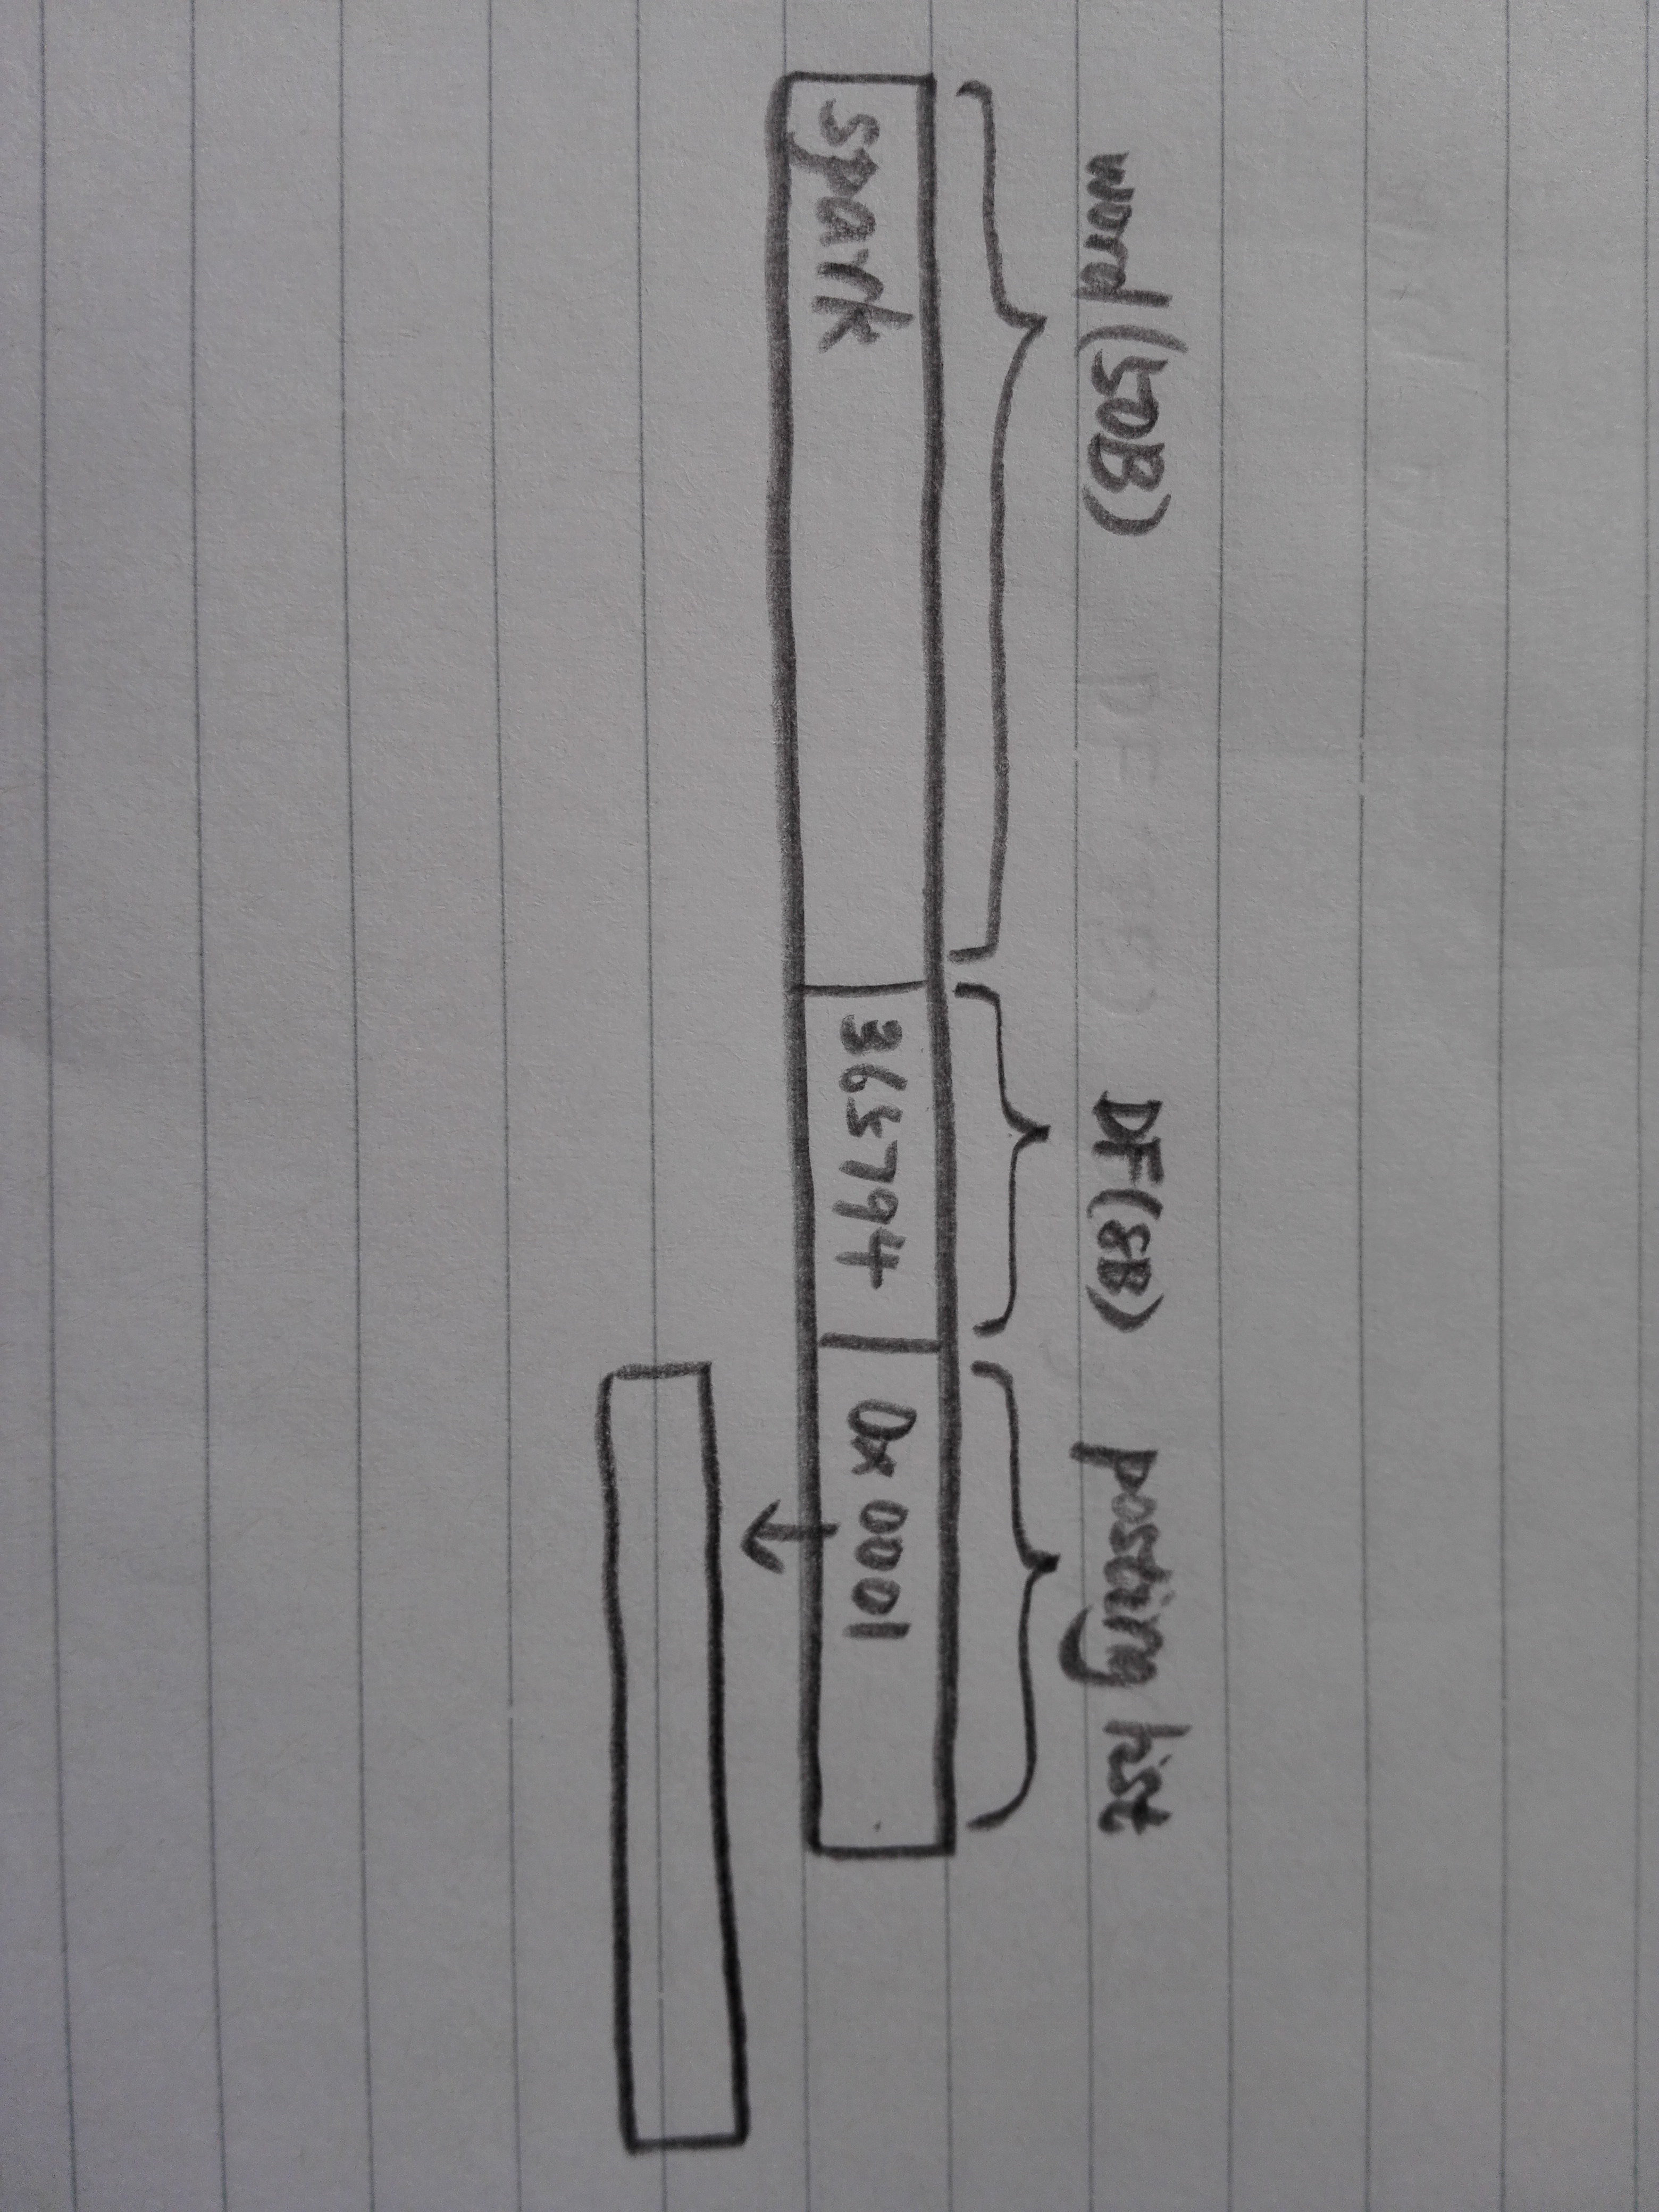 word (50B) DF(8B) posting list
spark 365794 0x0001